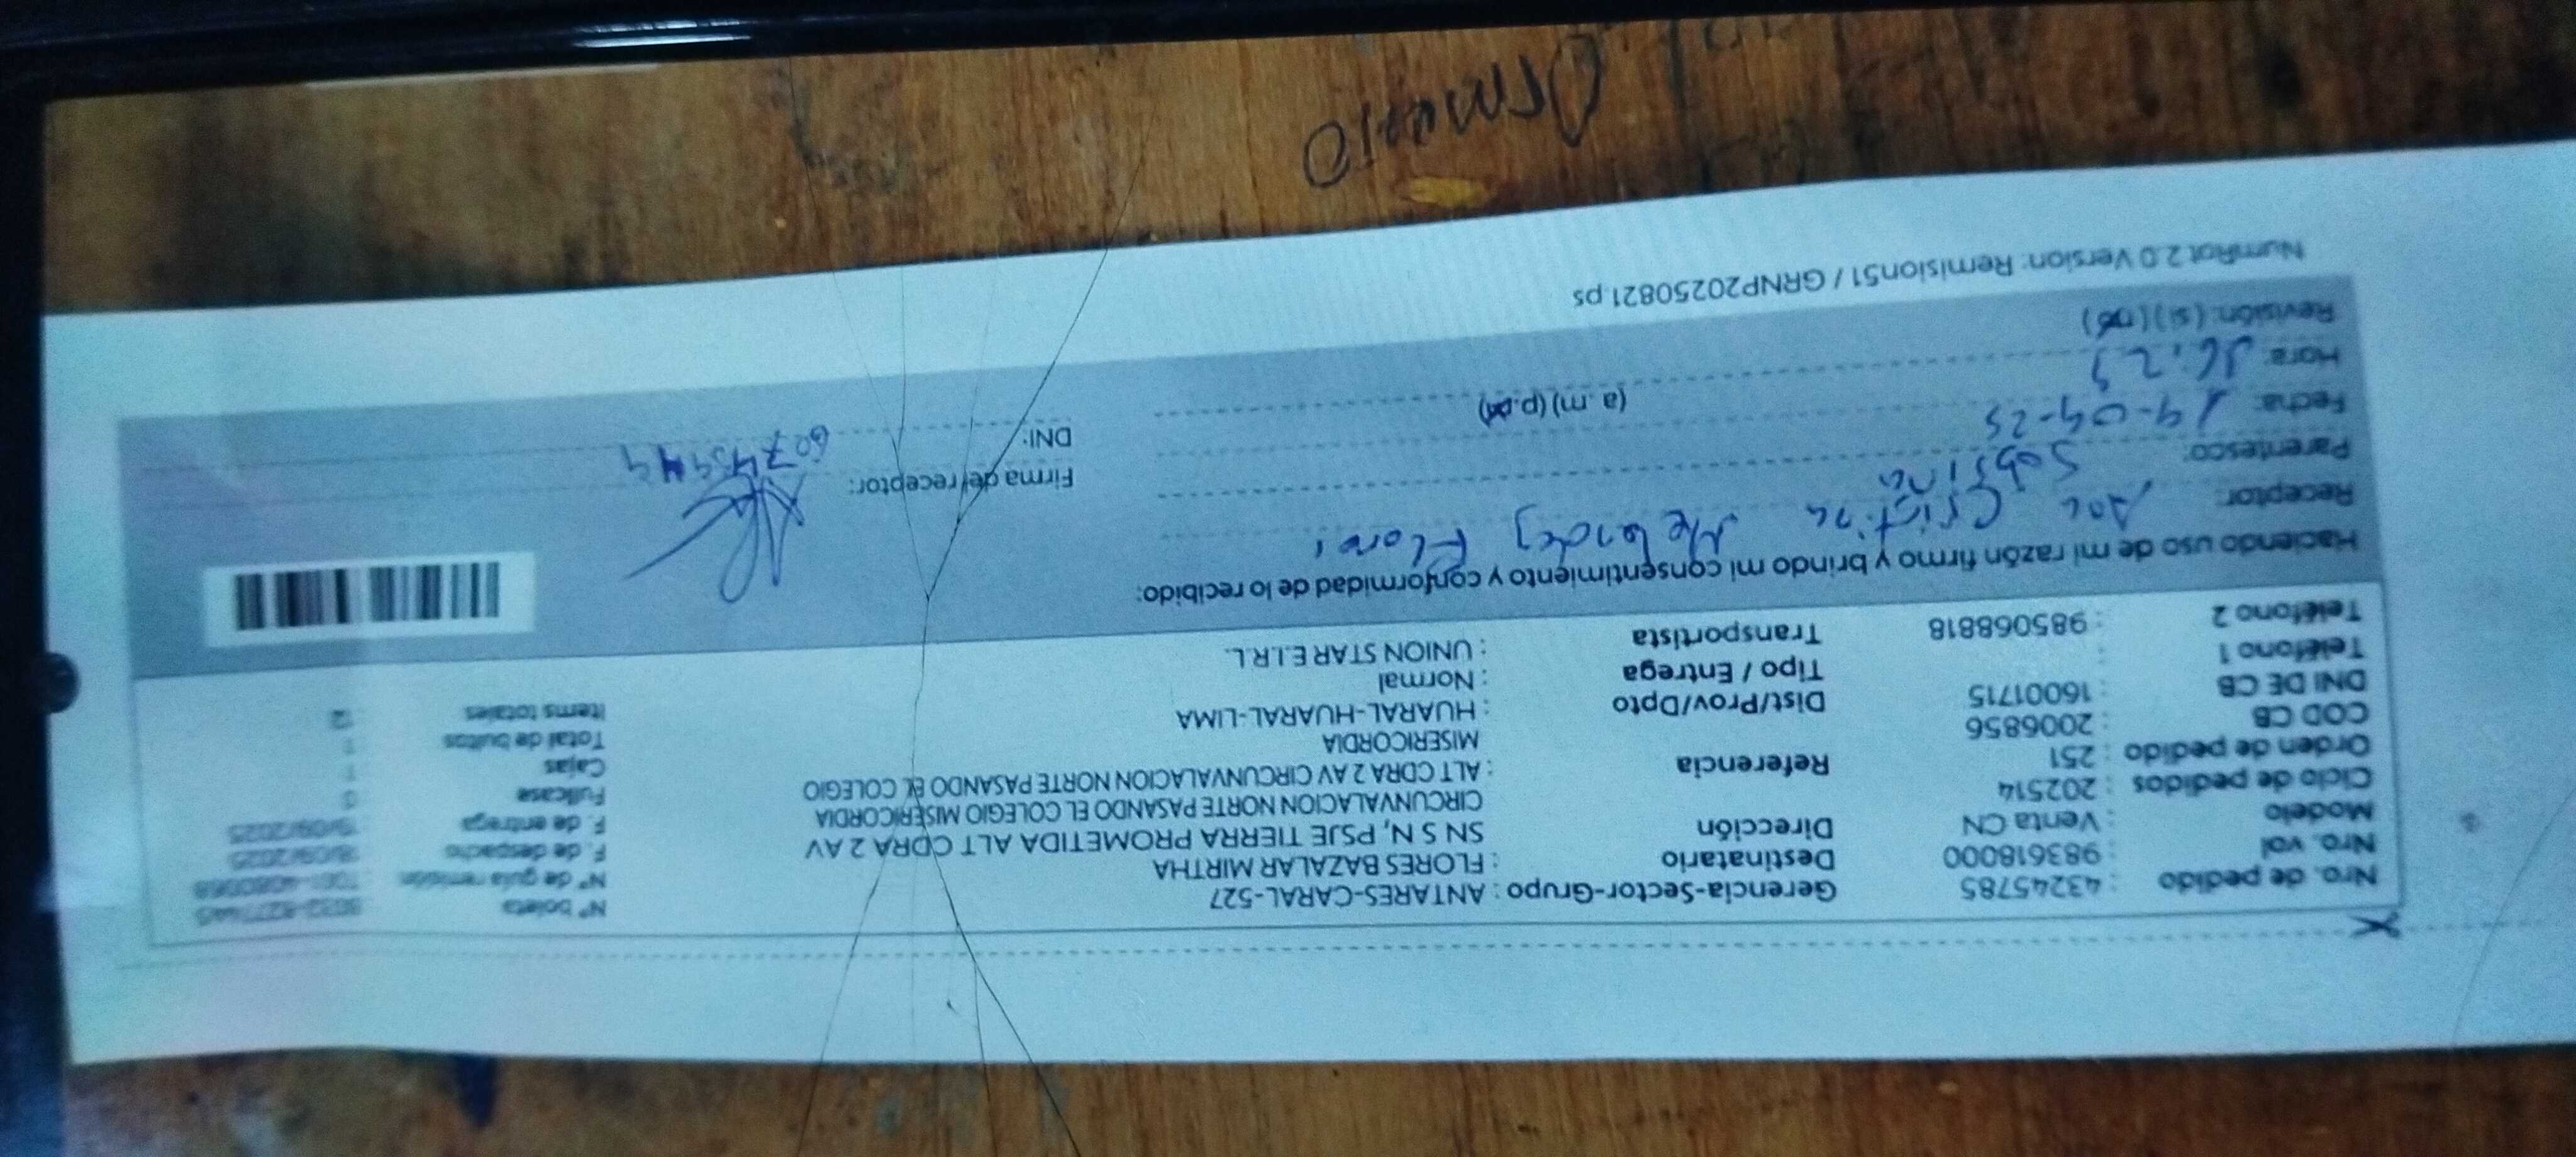 Nro. de pedido : 43245785
Nro. vol : 983618000
Modelo : Venta CN
Ciclo de pedidos : 202514
Orden de pedido : 251
COD CB : 2006856
DNI DE CB : 16001715
Teléfono 1 :
Teléfono 2 : 985068818
Gerencia-Sector-Grupo : ANTARES-CARAL-527
Destinatario : FLORES BAZALAR MIRTHA
Dirección SN S N, PSJE TIERRA PROMETIDA ALT CDRA 2 AV
CIRCUNVALACION NORTE PASANDO EL COLEGIO MISERICORDIA
Referencia : ALT CDRA 2 AV CIRCUNVALACION NORTE PASANDO EL COLEGIO
MISERICORDIA
Dist/Prov/Dpto : HUARAL-HUARAL-LIMA
Tipo / Entrega : Normal
Transportista : UNION STAR E.I.R.L.
N° boleta
N° de guía remisión
F. de despacho : 18/09/2025
F. de entrega : 19/09/2025
Fullcase
Cajas
Total de bultos
Items totales : 12
Haciendo uso de mi razón firmo y brindo mi consentimiento y conformidad de lo recibido:
Receptor: Ana Cristina Melendez Flores
Parentesco: Sobrina
Fecha:
Hora: (a. m) (p.m)
Revisión: (si) (no)
Firma de receptor:
DNI:
NumRot 2.0 Version: Remision51 / GRNP20250821.ps